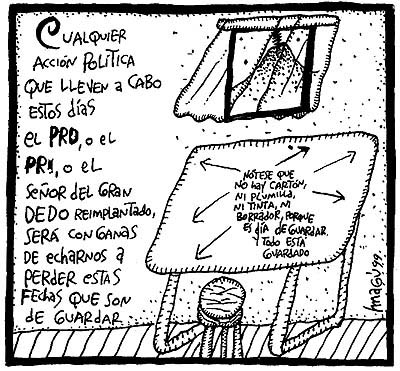 CUALQUIER
ACCIÓN POLÍTICA
QUE LLEVEN A CABO
ESTOS DÍAS
EL PRD, O EL
PRI, O EL
SEÑOR DEL GRAN
DEDO REIMPLANTADO,
SERÁ CON GANAS
DE ECHARNOS A
PERDER ESTAS
FECHAS QUE SON
DE GUARDAR
NÓTESE QUE
NO HAY CARTÓN,
NI PLUMILLA,
NI TINTA, NI
BORRADOR, PORQUE
ES DÍA DE GUARDAR
Y TODO ESTÁ
GUARDADO
MAGÚ 99.